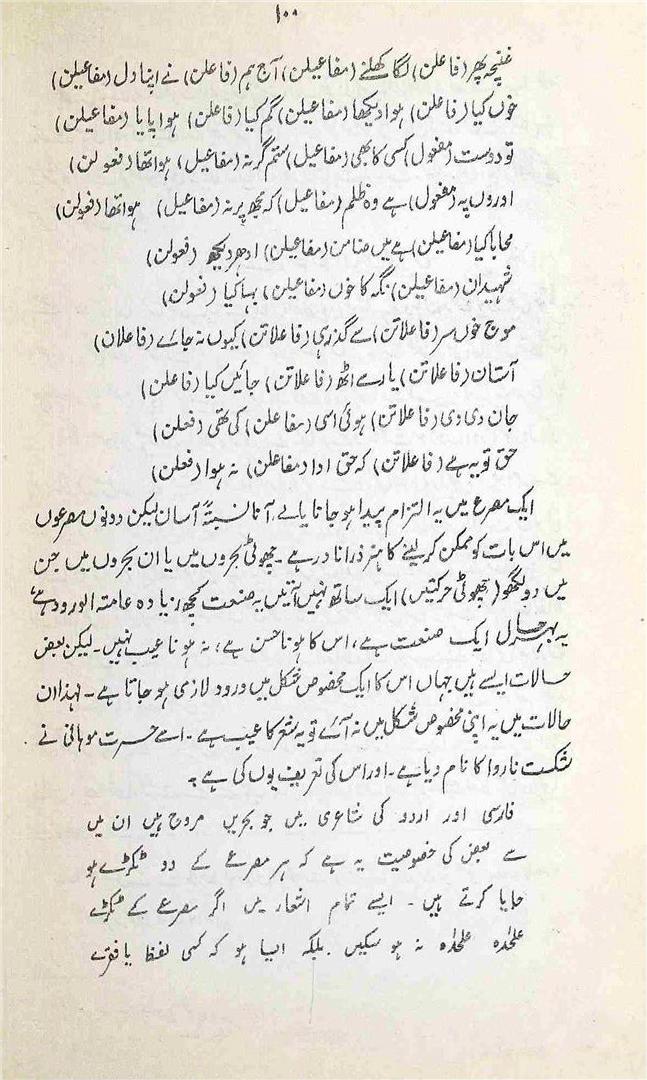 ۱۰۰
غنچہ پھر (فاعلن) لگا کھلنے (مفاعیلن) آج ہم (فاعلن) نے اپنا دل (مفاعیلن)
خوں کیا (فاعلن) ہوا دیکھا (مفاعیلن) گم کیا (فاعلن) ہوا پایا (مفاعیلن)
تو دوست (مفعول) کسی کا بھی (مفاعیل) ستم گر نہ (مفاعیل) ہوا تھا (فعولن)
اوروں پہ (مفعول) ہے وہ ظلم (مفاعیل) کہ مجھ پر نہ (مفاعیل) ہوا تھا (فعولن)
محابا کیا (مفاعیلن) ہے میں ضامن (مفاعیلن) ادھر دیکھ (فعولن)
شہیدان (مفاعیلن) نگہ کا خوں (مفاعیلن) بہا کیا (فعولن)
موج خوں سر (فاعلاتن) سے گذر ہی (فاعلاتن) کیوں نہ جائے (فاعلان)
آستان (فاعلاتن) یار سے اٹھ (فاعلاتن) جائیں کیا (فاعلن)
جان دی دی (فاعلاتن) ہوئی اسی (مفاعلن) کی تھی (فعلن)
حق تو یہ ہے (فاعلاتن) کہ حق ادا (مفاعلن) نہ ہوا (فعلن)
ایک مصرع میں یہ التزام پیدا ہو جانا یا لے آنا نسبتہً آسان لیکن دونوں مصرعوں
میں اس بات کو ممکن کر لینے کا ہنر ذرا نادر ہے۔ چھوٹی بحروں میں یا ان بحروں میں جن
میں دو لگھو (چھوٹی حرکتیں) ایک ساتھ نہیں آتیں یہ صنعت کچھ زیادہ عامتہ الورود ہے،
یہ بہرحال ایک صنعت ہے، اس کا ہونا حسن ہے، نہ ہونا عیب نہیں۔ لیکن بعض
حالات ایسے ہیں جہاں اس کا ایک مخصوص شکل میں ورود لازمی ہو جاتا ہے۔ لہٰذا ان
حالات میں یہ اپنی مخصوص شکل میں نہ آئے تو یہ شعر کا عیب ہے۔ اسے حسرت موہانی نے
شکست ناروا کا نام دیا ہے۔ اور اس کی تعریف یوں کی ہے :۔
فارسی اور اردو کی شاعری میں جو بحریں مروج ہیں ان میں
سے بعض کی خصوصیت یہ ہے کہ ہر مصرعے کے دو ٹکڑے ہو
جایا کرتے ہیں۔ ایسے تمام اشعار میں اگر مصرعے کے ٹکڑے
علٰحدہ علٰحدہ نہ ہو سکیں بلکہ ایسا ہو کہ کسی لفظ یا فقرے